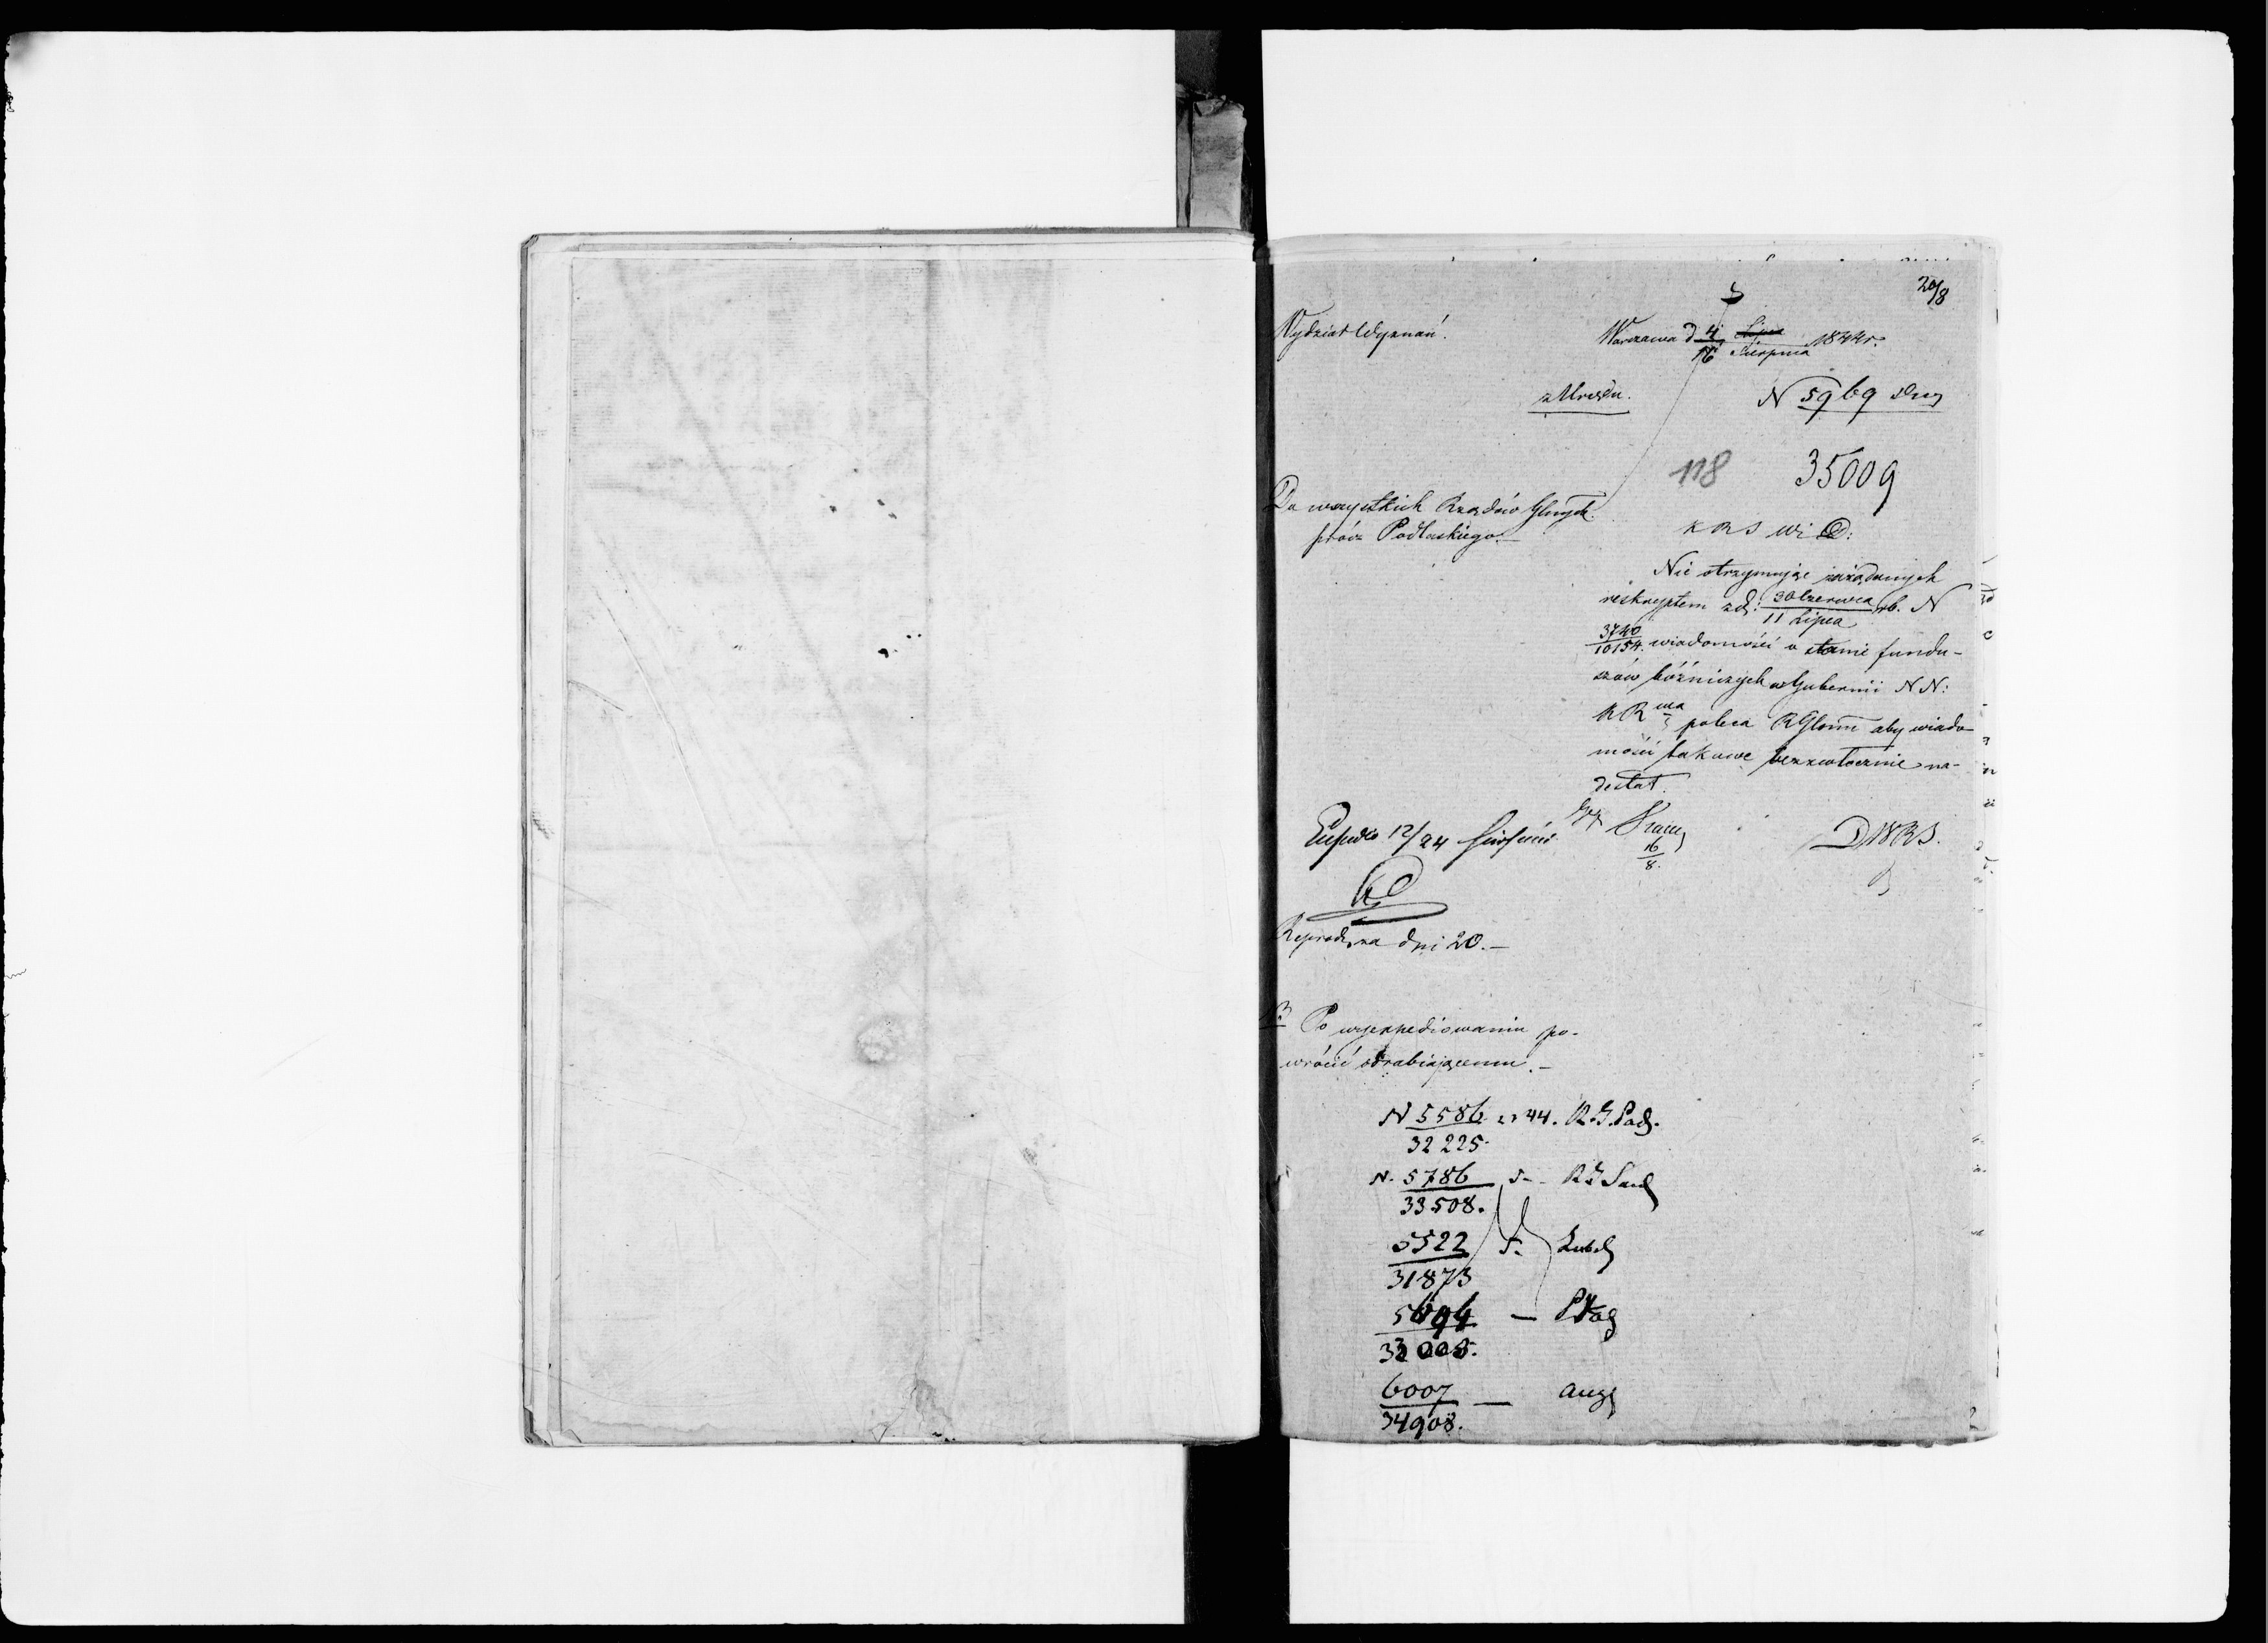 20/8
Wydział Wyznań.
Warszawa d 4/16 Lipca Sierpnia 1844 r.
z Urzędu.
N 5969
118 35009
Do wszystkich Rządów Glnych
prócz Podlaskiego.—
K R S W i D:
Nie otrzymując zażądanych
reskryptem z d: 30 Czerwca/11 Lipca rb. N
3740/10154. wiadomości o stanie fundu-
szów bóźniczych w Gubernii N N:
K R wa poleca R Glnu aby wiado-
mości takowe bezzwłocznie na-
desłał.
12/24
16/8.
D W R S.
Reprod. za dni 20.—
Po wyexpediowaniu po-
wrócić odrabiającemu.—
N 5586/32225. 44. R. G. Pod.
N. 5786/33508. R G Sand
5522/31873 Lubel
5694 —
6007/34908. — Aug